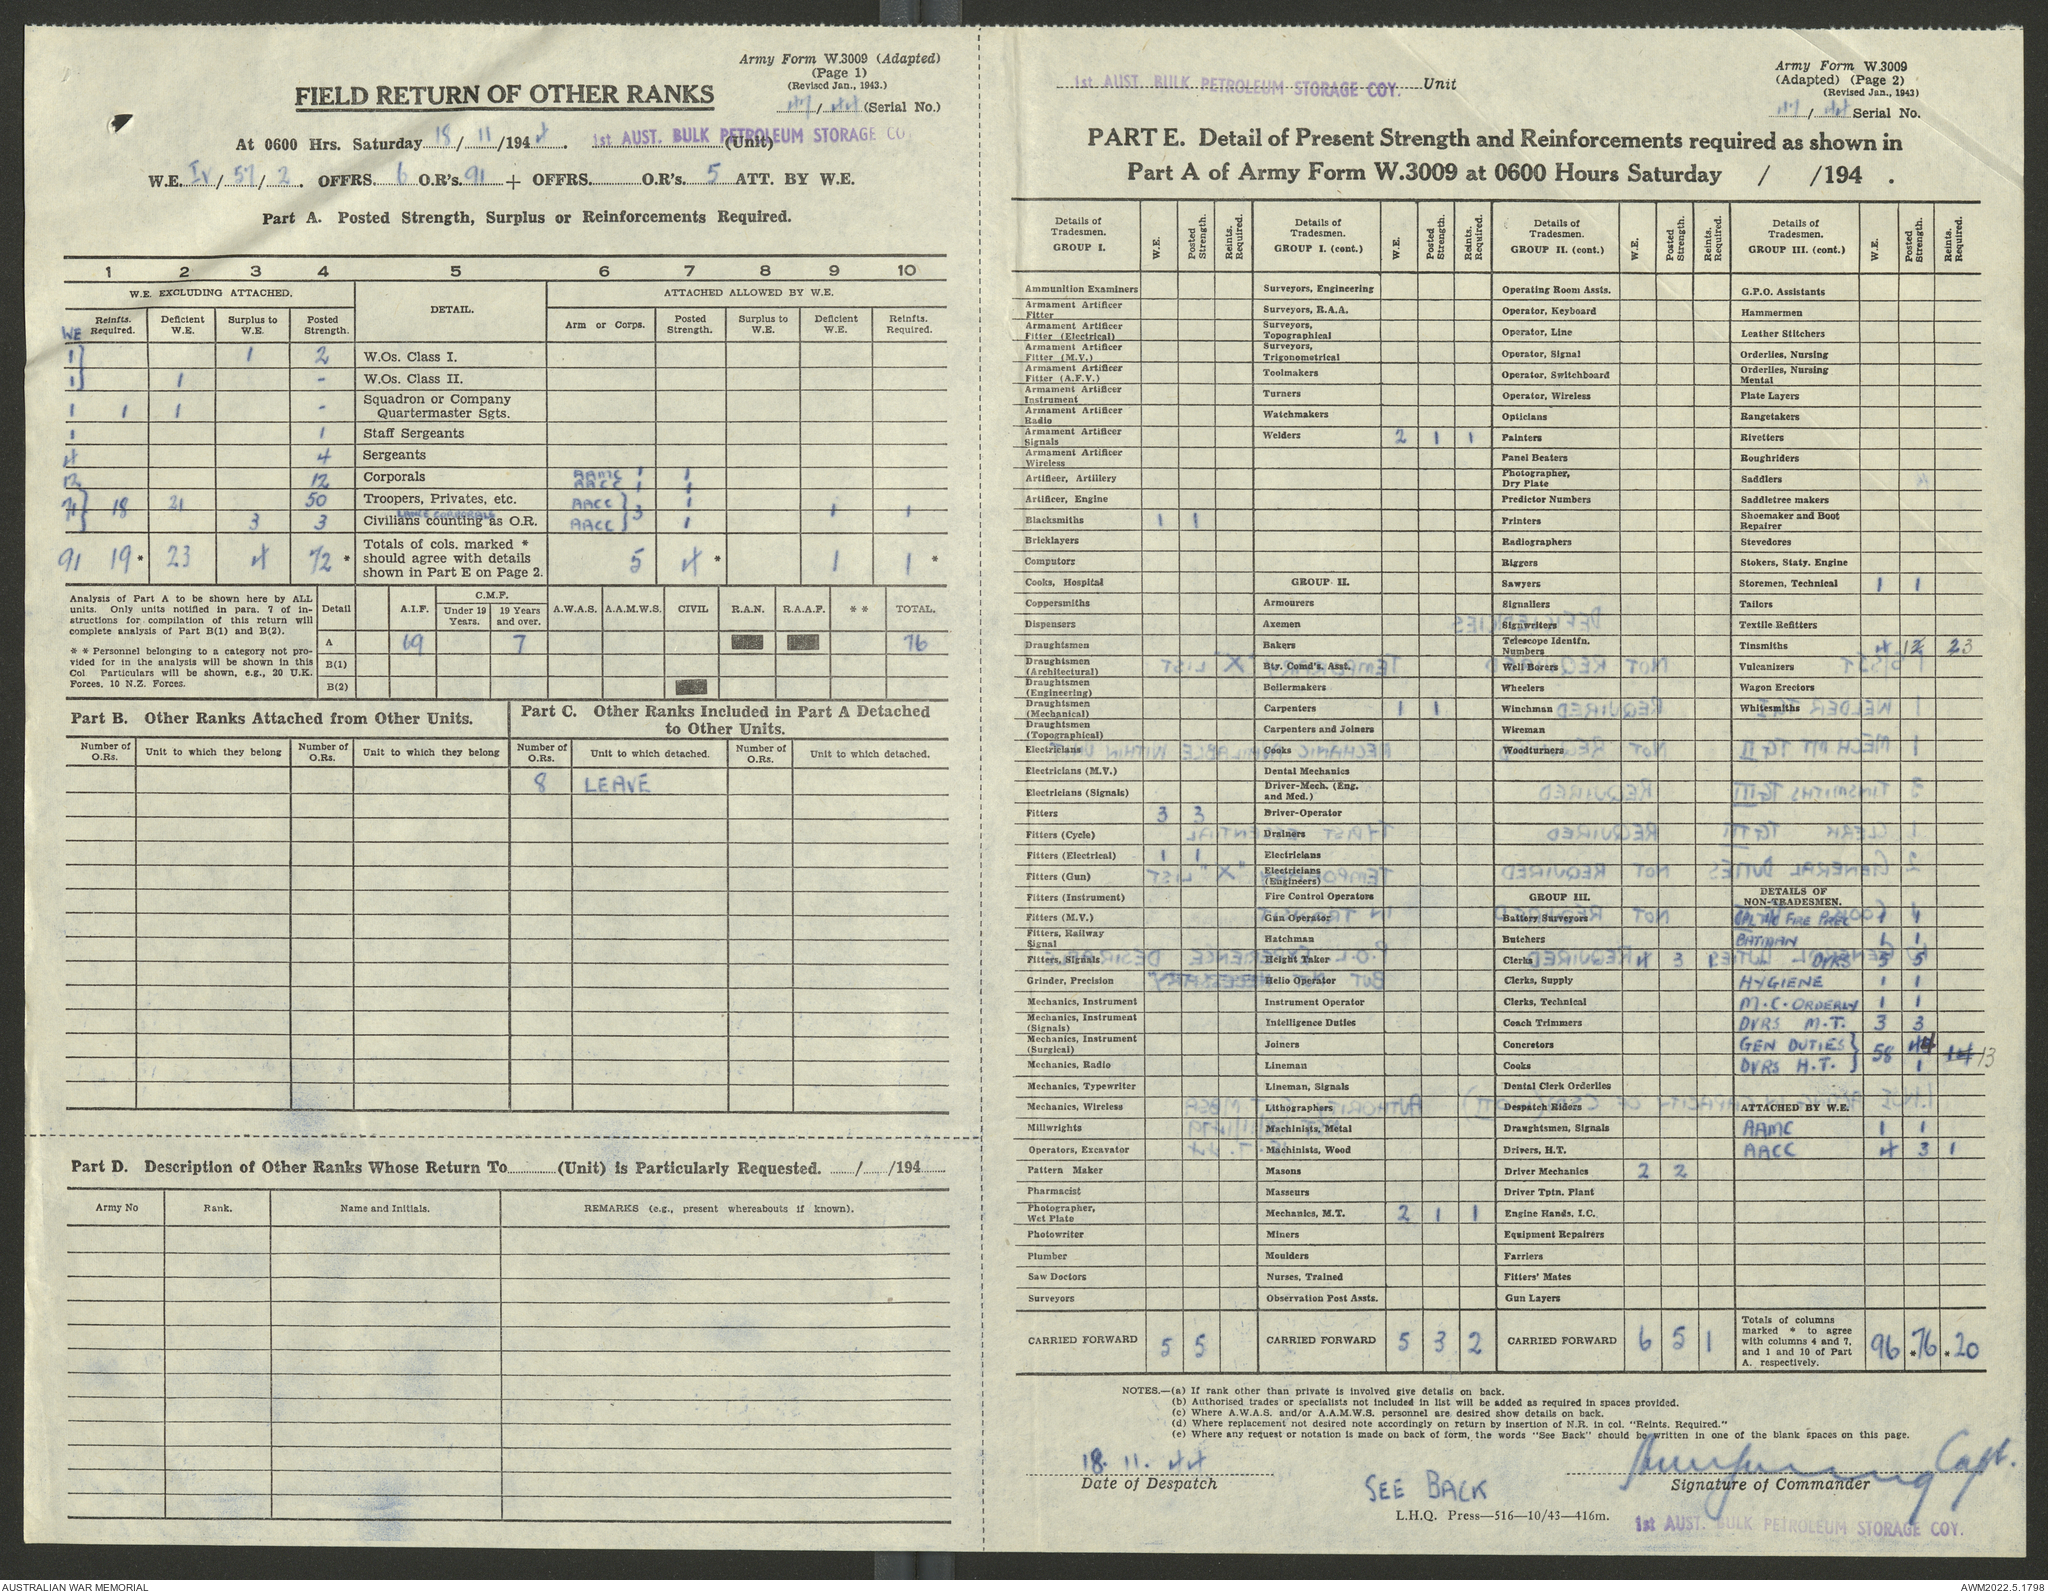 Army Form W.3009 (Adapted)
(Page 1)
(Revised Jan., 1943.)
FIELD RETURN OF OTHER RANKS
47/44 (Serial No.)
At 0600 Hrs. Saturday 18/11/1944. 1st AUST. BULK PETROLEUM STORAGE CO (Unit)
W.E. IV/57/2. OFFRS. 6 O.R's. 91 + OFFRS. O.R's. 5 ATT. BY W.E.
Part A. Posted Strength, Surplus or Reinforcements Required.
1 2 3 4 5 6 7 8 9 10
W.E. EXCLUDING ATTACHED. DETAIL. ATTACHED ALLOWED BY W.E.
WE Reinfts. Required. Deficient W.E. Surplus to W.E. Posted Strength. Arm or Corps. Posted Strength. Surplus to W.E. Deficient W.E. Reinfts. Required.
1 1 2 W.Os. Class I.
1 1 - W.Os. Class II.
1 1 1 - Squadron or Company Quartermaster Sgts.
1 1 Staff Sergeants
4 4 Sergeants
12 12 Corporals AAMC 1 1
AACC 1 1
71 18 21 50 Troopers, Privates, etc. AACC 3 1 1 1
LANCE CORPORALS
3 3 Civilians counting as O.R. AACC 1
91 19* 23 4 72* Totals of cols. marked * should agree with details shown in Part E on Page 2. 5 4* 1 1*
Analysis of Part A to be shown here by ALL units. Only units notified in para. 7 of instructions for compilation of this return will complete analysis of Part B(1) and B(2).
* * Personnel belonging to a category not provided for in the analysis will be shown in this Col. Particulars will be shown, e.g., 20 U.K. Forces, 10 N.Z. Forces.
Detail A.I.F. C.M.F. Under 19 Years. 19 Years and over. A.W.A.S. A.A.M.W.S. CIVIL R.A.N. R.A.A.F. * * TOTAL.
A 69 7 76
B(1)
B(2)
Part B. Other Ranks Attached from Other Units.
Part C. Other Ranks Included in Part A Detached to Other Units.
Number of O.Rs. Unit to which they belong Number of O.Rs. Unit to which they belong Number of O.Rs. Unit to which detached. Number of O.Rs. Unit to which detached.
8 LEAVE
Part D. Description of Other Ranks Whose Return To (Unit) is Particularly Requested. / /194
Army No Rank. Name and Initials. REMARKS (e.g., present whereabouts if known).
1st AUST. BULK PETROLEUM STORAGE COY. Unit
Army Form W.3009
(Adapted) (Page 2)
(Revised Jan., 1943)
47/44 Serial No.
PART E. Detail of Present Strength and Reinforcements required as shown in
Part A of Army Form W.3009 at 0600 Hours Saturday / /194 .
Details of Tradesmen. GROUP I. W.E. Posted Strength. Reints. Required.
Ammunition Examiners
Armament Artificer Fitter
Armament Artificer Fitter (Electrical)
Armament Artificer Fitter (M.V.)
Armament Artificer Fitter (A.F.V.)
Armament Artificer Instrument
Armament Artificer Radio
Armament Artificer Signals
Armament Artificer Wireless
Artificer, Artillery
Artificer, Engine
Blacksmiths 1 1
Bricklayers
Computors
Cooks, Hospital
Coppersmiths
Dispensers
Draughtsmen
Draughtsmen (Architectural)
Draughtsmen (Engineering)
Draughtsmen (Mechanical)
Draughtsmen (Topographical)
Electricians
Electricians (M.V.)
Electricians (Signals)
Fitters 3 3
Fitters (Cycle)
Fitters (Electrical) 1 1
Fitters (Gun)
Fitters (Instrument)
Fitters (M.V.)
Fitters, Railway Signal
Fitters, Signals
Grinder, Precision
Mechanics, Instrument
Mechanics, Instrument (Signals)
Mechanics, Instrument (Surgical)
Mechanics, Radio
Mechanics, Typewriter
Mechanics, Wireless
Millwrights
Operators, Excavator
Pattern Maker
Pharmacist
Photographer, Wet Plate
Photowriter
Plumber
Saw Doctors
Surveyors
CARRIED FORWARD 5 5
Details of Tradesmen. GROUP I. (cont.) W.E. Posted Strength. Reints. Required.
Surveyors, Engineering
Surveyors, R.A.A.
Surveyors, Topographical
Surveyors, Trigonometrical
Toolmakers
Turners
Watchmakers
Welders 2 1 1
GROUP II.
Armourers
Axemen
Bakers
Bty. Comd's. Asst.
Boilermakers
Carpenters 1 1
Carpenters and Joiners
Cooks
Dental Mechanics
Driver-Mech. (Eng. and Med.)
Driver-Operator
Drainers
Electricians
Electricians (Engineers)
Fire Control Operators
Gun Operator
Hatchman
Height Taker
Helio Operator
Instrument Operator
Intelligence Duties
Joiners
Lineman
Lineman, Signals
Lithographers
Machinists, Metal
Machinists, Wood
Masons
Masseurs
Mechanics, M.T. 2 1 1
Miners
Moulders
Nurses, Trained
Observation Post Assts.
CARRIED FORWARD 5 3 2
Details of Tradesmen. GROUP II. (cont.) W.E. Posted Strength. Reints. Required.
Operating Room Assts.
Operator, Keyboard
Operator, Line
Operator, Signal
Operator, Switchboard
Operator, Wireless
Opticians
Painters
Panel Beaters
Photographer, Dry Plate
Predictor Numbers
Printers
Radiographers
Riggers
Sawyers
Signallers
Signwriters
Telescope Identfn. Numbers
Well Borers
Wheelers
Winchman
Wireman
Woodturners
GROUP III.
Battery Surveyors
Butchers
Clerks 4 3 1
Clerks, Supply
Clerks, Technical
Coach Trimmers
Concretors
Cooks
Dental Clerk Orderlies
Despatch Riders
Draughtsmen, Signals
Drivers, H.T.
Driver Mechanics 2 2
Driver Tptn. Plant
Engine Hands, I.C.
Equipment Repairers
Farriers
Fitters' Mates
Gun Layers
CARRIED FORWARD 6 5 1
Details of Tradesmen. GROUP III. (cont.) W.E. Posted Strength. Reints Required.
G.P.O. Assistants
Hammermen
Leather Stitchers
Orderlies, Nursing
Orderlies, Nursing Mental
Plate Layers
Rangetakers
Rivetters
Roughriders
Saddlers
Saddletree makers
Shoemaker and Boot Repairer
Stevedores
Stokers, Staty. Engine
Storemen, Technical 1 1
Tailors
Textile Refitters
Tinsmiths 4 12 23
Vulcanizers
Wagon Erectors
Whitesmiths
DETAILS OF NON-TRADESMEN.
CPL I/C FIRE PREC 1 1
BATMAN 1 1
" - DVRS 5 5
HYGIENE 1 1
M.C. ORDERLY 1 1
DVRS M.T. 3 3
GEN DUTIES 58 44 14 13
DVRS H.T. 1
ATTACHED BY W.E.
AAMC 1 1
AACC 4 3 1
Totals of columns marked * to agree with columns 4 and 7, and 1 and 10 of Part A. respectively. 96 *76 *20
NOTES.—(a) If rank other than private is involved give details on back.
(b) Authorised trades or specialists not included in list will be added as required in spaces provided.
(c) Where A.W.A.S. and/or A.A.M.W.S. personnel are desired show details on back.
(d) Where replacement not desired note accordingly on return by insertion of N.R. in col. "Reints. Required."
(e) Where any request or notation is made on back of form, the words "See Back" should be written in one of the blank spaces on this page.
18. 11. 44
Date of Despatch
SEE BACK
Capt.
Signature of Commander
L.H.Q. Press—516—10/43—416m.
1st AUST. BULK PETROLEUM STORAGE COY.
AUSTRALIAN WAR MEMORIAL
AWM2022.5.1798